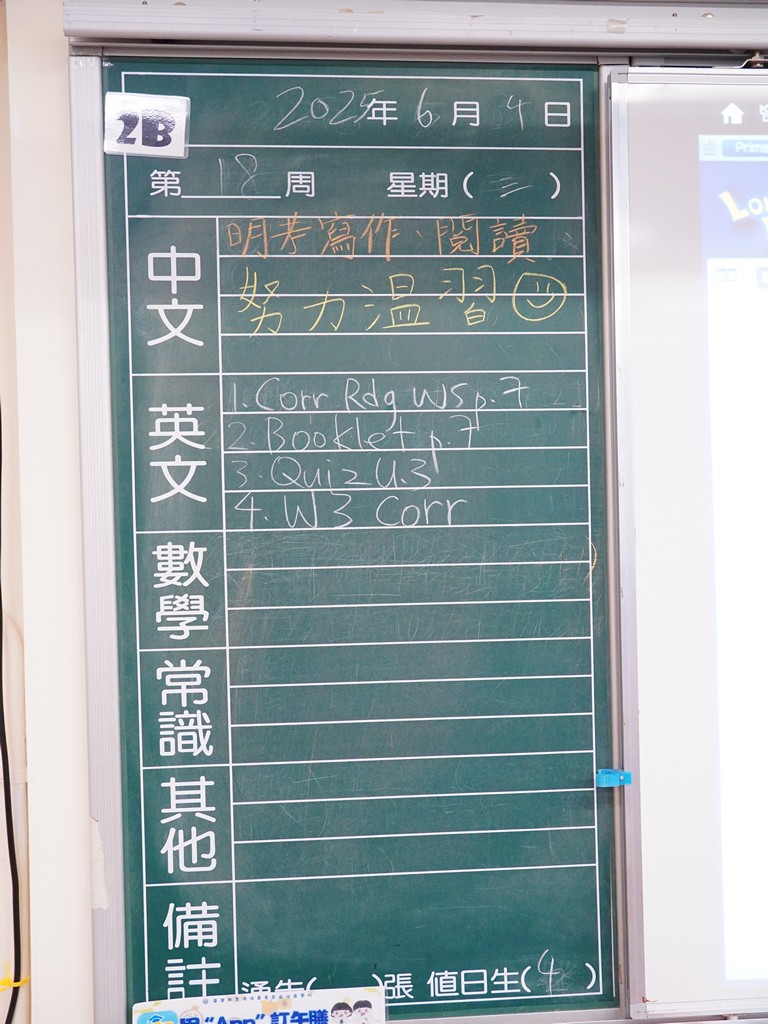 2B
2025年6月4日
第18周 星期(三)
中文
明考寫作、閱讀
努力溫習
英文
1. Corr Rdg WS p.7
2. Booklet p.7
3. Quiz U.3
4. W3 Corr
數學
常識
其他
備註
通告( )張 值日生(4)
"App"訂午膳
Prima